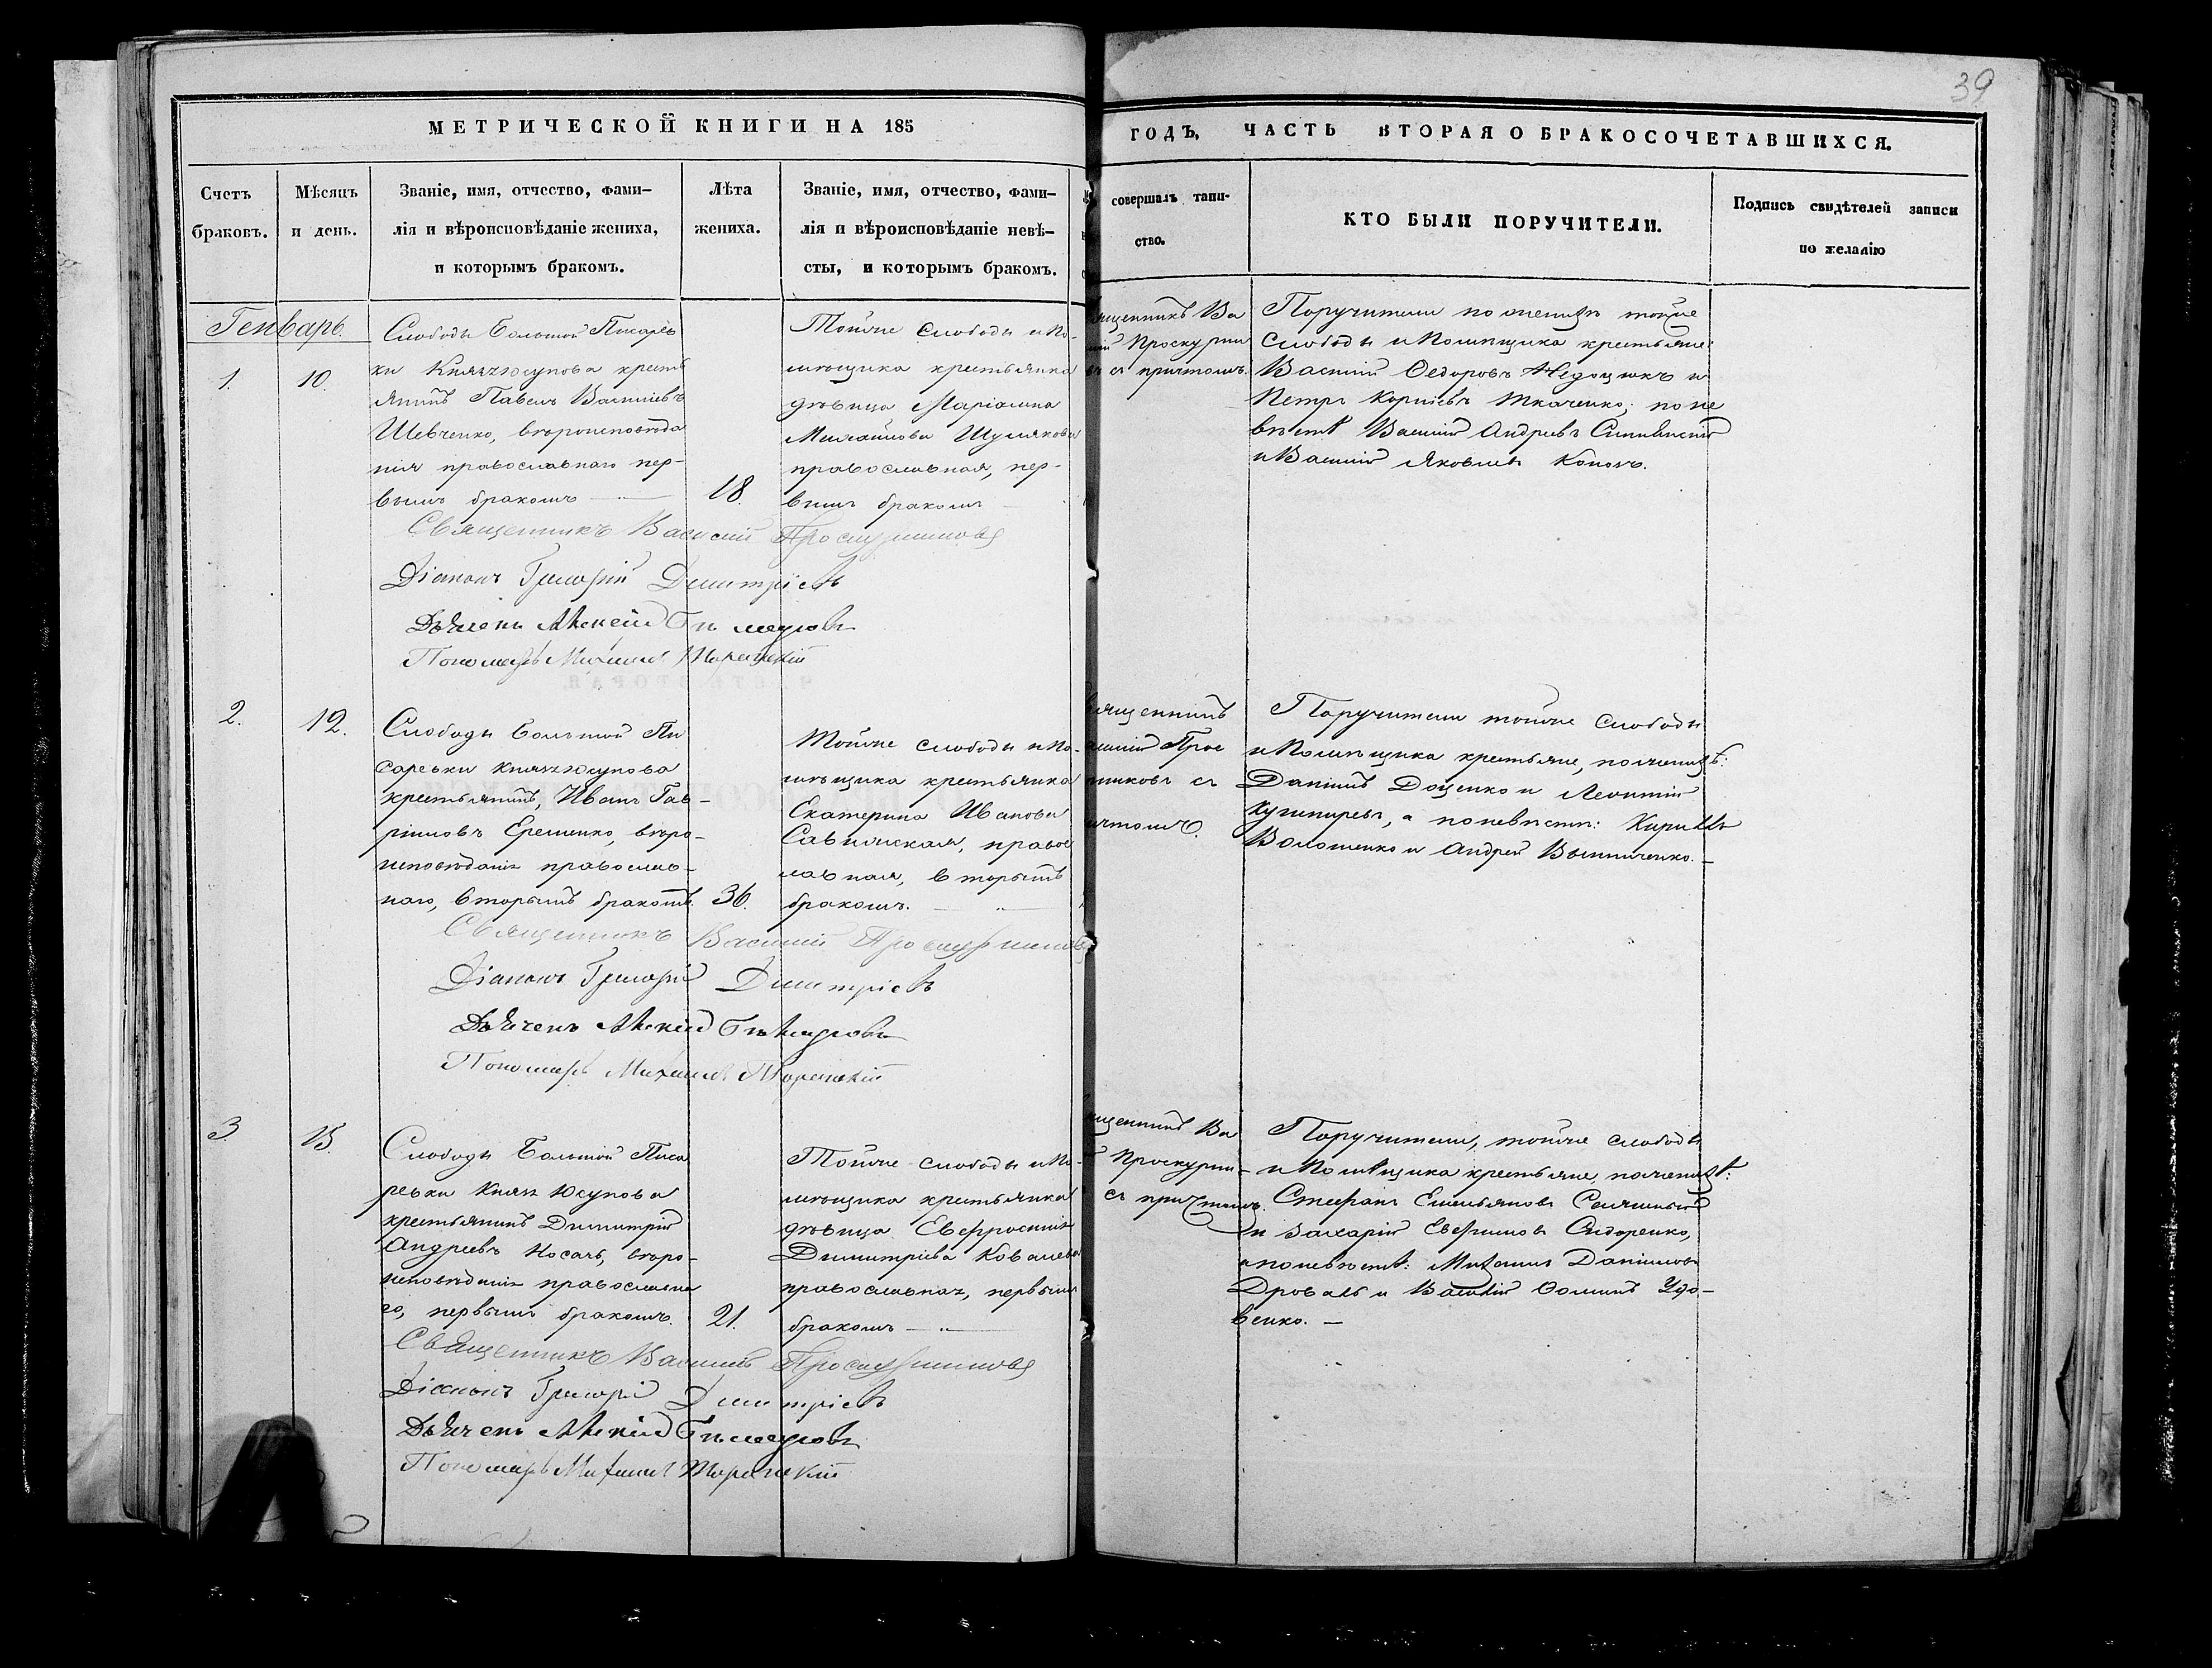 39
МЕТРИЧЕСКОЙ КНИГИ НА 185
ГОДЪ, ЧАСТЬ ВТОРАЯ О БРАКОСОЧЕТАВШИХСЯ.
Счетъ
браковъ.
Мѣсяцъ
и день.
Званіе, имя, отчество, фами-
лія и вѣроисповѣданіе жениха,
и которымъ бракомъ.
Лѣта
жениха.
Званіе, имя, отчество, фами-
лія и вѣроисповѣданіе невѣ-
сты, и которымъ бракомъ.
совершалъ таин-
ство.
КТО БЫЛИ ПОРУЧИТЕЛИ.
Подпись свидѣтелей записи
по желанію
Генварь.
1.
10.
Слободы Большой Писарев
ки Князя Юсупова кресть
янинъ Павелъ Василіевъ
Шевченко, вѣроисповѣда
нія православнаго пер-
вымъ бракомъ
18.
Тойже слободы и По-
мѣщика крестьянка
дѣвица Маріанна
Михайлова
православная, пер-
вымъ бракомъ
ященникъ Ва
Проскурни
съ причтомъ.
Поручители по женихѣ тойже
слободы и Помѣщика крестьяне:
Василій Ѳедоровъ и
Петръ Корніевъ Ткаченко; по не
вѣстѣ Василій Андреевъ
и Василій Яковлевъ
Священникъ Василій
Діаконъ Григорій Димитріевъ
Дьячекъ Алексій
Пономарь Михаилъ
2.
12.
Слободы Большой Пи
саревки Князя Юсупова
крестьянинъ, Иванъ Гав-
ріиловъ Еременко, вѣро-
исповѣданія православ-
наго, вторымъ бракомъ.
36.
Тойже слободы и По-
мѣщика крестьянка
Екатерина Иванова
правос
лавная, вторымъ
бракомъ.
вященникъ
Прос
никовъ съ
ичтомъ.
Поручители тойже слободы
и Помѣщика крестьяне, по женихѣ:
Даніилъ Доценко и Леонтій
а по невѣстѣ: Кириллъ
Волошенко и Андрей Винниченко.
Священникъ Василій
Діаконъ Григорій Димитріевъ
Дьячекъ Алексій
Пономарь Михаилъ
3
15.
Слободы Большой Писа
ревки Князя Юсупова
крестьянинъ Димитрій
Андреевъ Носачъ, вѣро-
исповѣданія православна
го, первымъ бракомъ.
21.
Тойже слободы и По-
мѣщика крестьянка
дѣвица Евфросинія
Димитріева Ковалева
православная, первымъ
бракомъ
ященникъ Ва
Проскурни-
съ причтомъ.
Поручители, тойже слободы
и Помѣщика крестьяне, по женихѣ:
Стефанъ Емельяновъ
и Захарій Евфимовъ Сидоренко,
а по невѣстѣ: Михаилъ Даніиловъ
Дроваль и Василій Ѳоминъ Удо-
венко.
Священникъ Василій
Діаконъ Григорій Димитріевъ
Дьячекъ Алексій
Пономарь Михаилъ